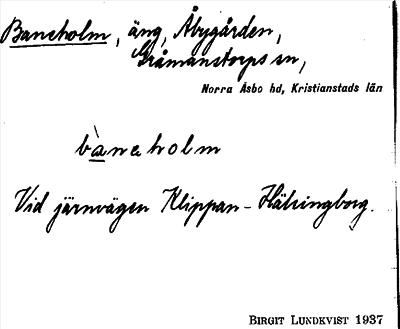 Baneholm, äng, Åbygården,
Gråmanstorps sn,
Norra Åsbo hd, Kristianstads län
bàneholm
Vid järnvägen Klippan - Hälsingborg.
BIRGIT LUNDKVIST 1937